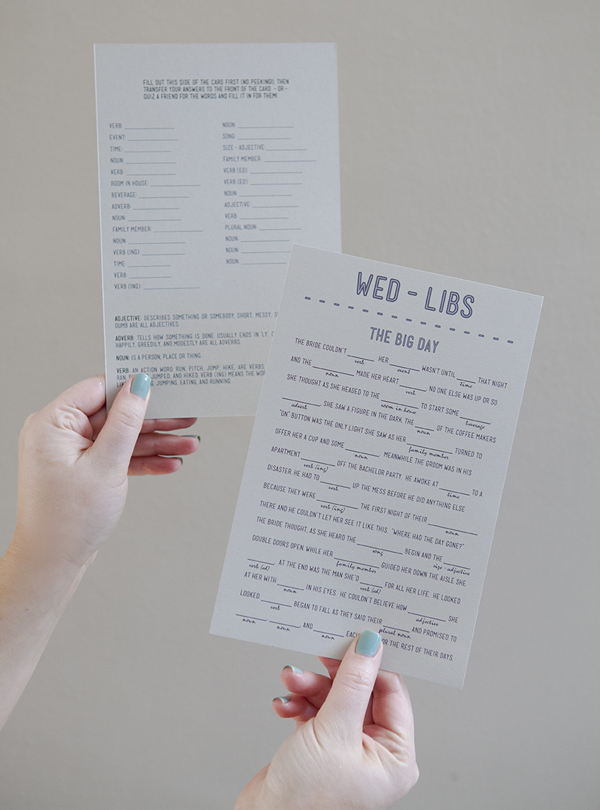 FILL OUT THIS SIDE OF THE CARD FIRST (NO PEEKING!), THEN
TRANSFER YOUR ANSWERS TO THE FRONT OF THE CARD - OR -
QUIZ A FRIEND FOR THE WORDS AND FILL IT IN FOR THEM!
VERB:
EVENT:
TIME:
NOUN:
VERB:
ROOM IN HOUSE:
BEVERAGE:
ADVERB:
NOUN:
FAMILY MEMBER:
NOUN:
VERB (ING):
TIME:
VERB:
VERB (ING):
NOUN:
SONG:
SIZE - ADJECTIVE:
FAMILY MEMBER:
VERB (ED):
VERB (ED):
NOUN:
ADJECTIVE:
VERB:
PLURAL NOUN:
NOUN:
NOUN:
NOUN:
ADJECTIVE: DESCRIBES SOMETHING OR SOMEBODY. SHORT, MESSY,
DUMB ARE ALL ADJECTIVES.
ADVERB: TELLS HOW SOMETHING IS DONE. USUALLY ENDS IN 'LY'.
HAPPILY, GREEDILY, AND MODESTLY ARE ALL ADVERBS.
NOUN: IS A PERSON, PLACE OR THING.
VERB: AN ACTION WORD. RUN, PITCH, JUMP, HIKE, ARE VERBS.
JUMPED, AND HIKED. VERB (ING) MEANS THE
JUMPING, EATING, AND RUNNING.
WED - LIBS
THE BIG DAY
THE BRIDE COULDN'T ____ HER ____ WASN'T UNTIL ____ THAT NIGHT
verb event time
AND THE ____ MADE HER HEART ____. NO ONE ELSE WAS UP OR SO
noun verb
SHE THOUGHT AS SHE HEADED TO THE ____ TO START SOME ____.
room in house beverage
____, SHE SAW A FIGURE IN THE DARK. THE ____ OF THE COFFEE MAKERS
adverb noun
"ON" BUTTON WAS THE ONLY LIGHT SHE SAW AS HER ____ TURNED TO
family member
OFFER HER A CUP AND SOME ____. MEANWHILE THE GROOM WAS IN HIS
noun
APARTMENT ____ OFF THE BACHELOR PARTY. HE AWOKE AT ____ TO A
verb (ing) time
DISASTER. HE HAD TO ____ UP THE MESS BEFORE HE DID ANYTHING ELSE
verb
BECAUSE THEY WERE ____ THE FIRST NIGHT OF THEIR ____
verb (ing) noun
THERE AND HE COULDN'T LET HER SEE IT LIKE THIS. "WHERE HAD THE DAY GONE?"
THE BRIDE THOUGHT, AS SHE HEARD THE ____ BEGIN AND THE ____
song size - adjective
DOUBLE DOORS OPEN. WHILE HER ____ GUIDED HER DOWN THE AISLE SHE
family member
____. AT THE END WAS THE MAN SHE'D ____ FOR ALL HER LIFE. HE LOOKED
verb (ed) verb (ed)
AT HER WITH ____ IN HIS EYES. HE COULDN'T BELIEVE HOW ____ SHE
noun adjective
LOOKED. ____ BEGAN TO FALL AS THEY SAID THEIR ____ AND PROMISED TO
verb plural noun
____ ____ AND ____ EACH FOR THE REST OF THEIR DAYS.
noun noun noun